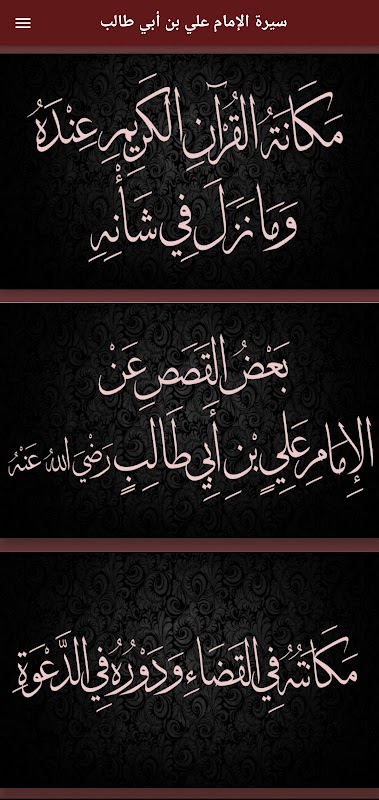 سيرة الإمام علي بن أبي طالب
مَكَانَةُ القُرْآنِ الكَرِيمِ عِنْدَهُ
وَمَا نَزَلَ فِي شَأْنِهِ
بَعْضُ القَصَصِ عَنْ
الإِمَامِ عَلِيِّ بْنِ أَبِي طَالِبٍ رَضْيَ اللهُ عَنْهُ
مَكَانَتُهُ فِي القَضَاءِ وَدَوْرُهُ فِي الدَّعْوَةِ